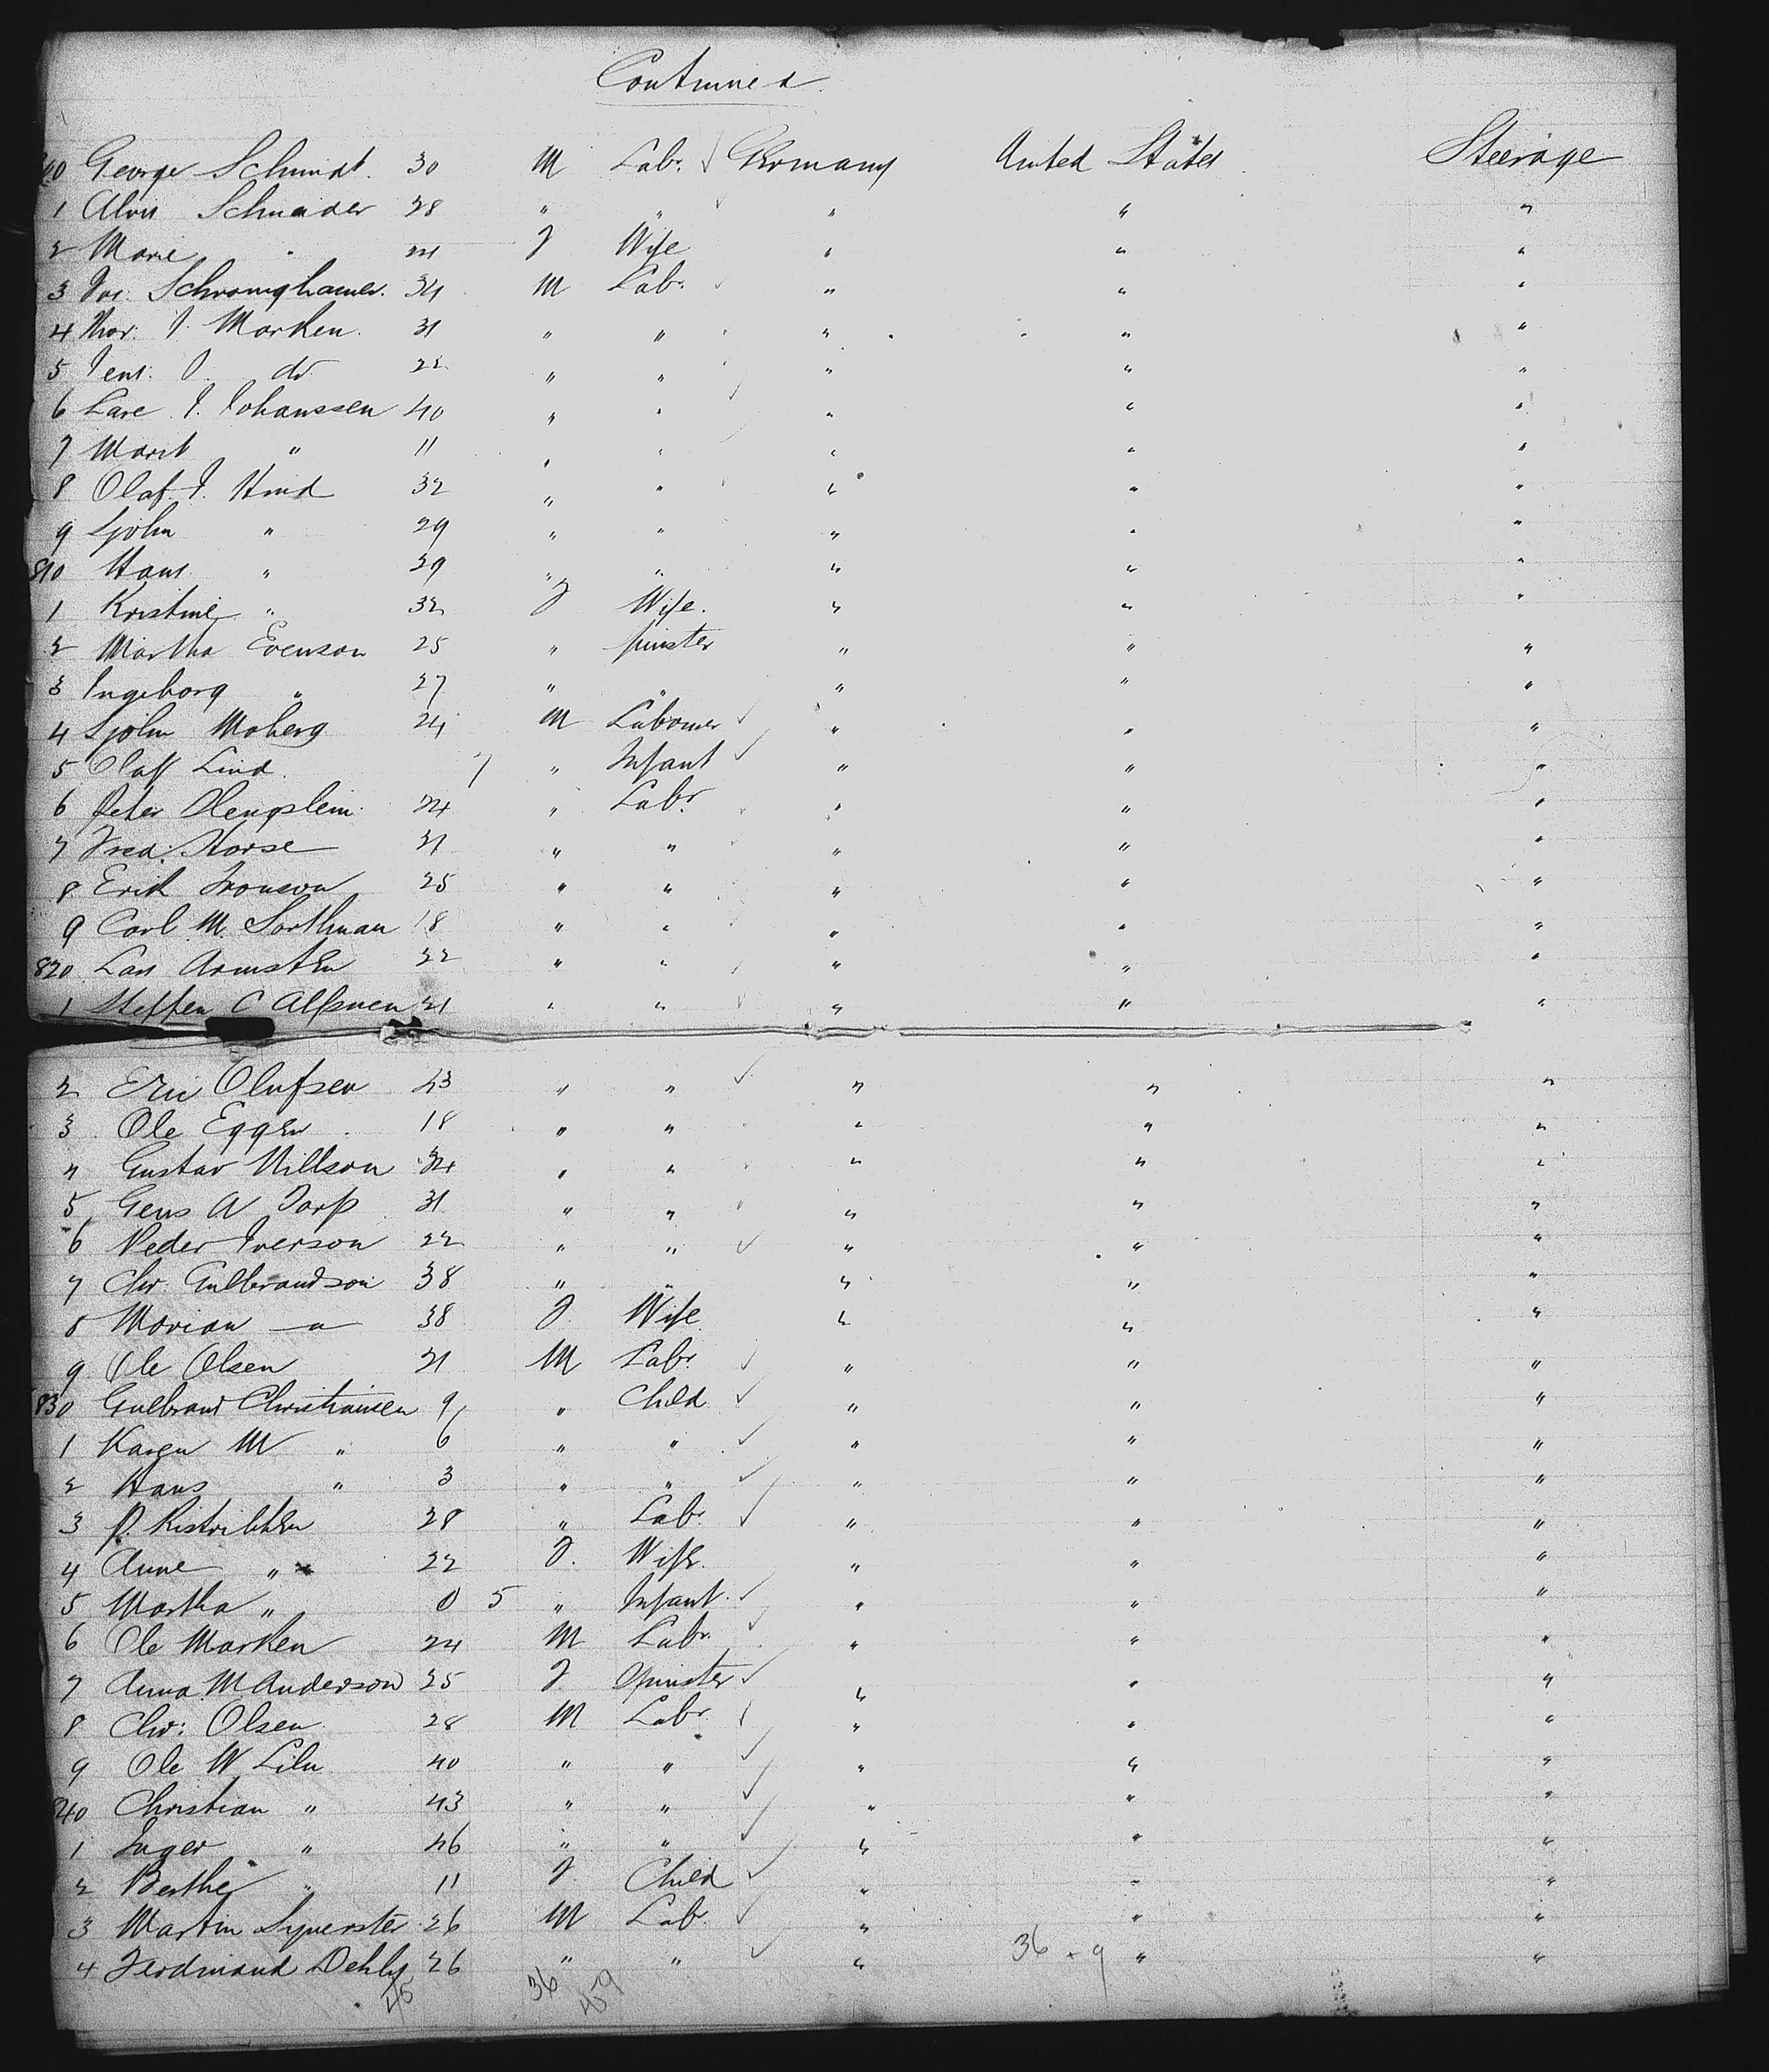 Continued
George Schmidt 30 M Labr. Germany United States Steerage
1 Alois Schneider 28 " " " " "
2 Marie " 24 F Wife " " "
3 Jos. Schroninghamer. 34 M Labr. " " "
4 J. Marken. 31 " " " " "
5 Jens. do 22 " " " " "
6 J. Johanssen 40 " " " " "
7 Marit " 11 " " " " "
8 Olaf. J. 32 " " " " "
9 " 29 " " " " "
810 Hans " 29 " " " " "
1 Kristine " 32 F Wife. " " "
2 Martha Evenson 25 " " " "
3 Ingeborg " 27 " " " " "
4 Moberg 24 M Labourer " " "
5 Olaff Lind 7 " Infant " " "
6 Peter 24 " Labr. " " "
7 Fred. Horse 31 " " " " "
8 Erick 25 " " " " "
9 Carl M. 18 " " " " "
820 Lars 22 " " " " "
1 Steffen C 21 " " " " "
2 Olufsen 43 " " " " "
3 Ole Eggen 18 " " " " "
4 Gustav Nillson 24 " " " " "
5 Gens A Torp 31 " " " " "
6 Peder Iverson 22 " " " " "
7 Chr: Gulbrandson 38 " " " " "
8 Marian " 38 F. Wife " " "
9 Ole Olsen 21 M Labr. " " "
830 Gulbrand Christiansen 9 " Child " " "
1 Karen M " 6 " " " " "
2 Hans " 3 " " " " "
3 P. 28 " Labr. " " "
4 Anne " 22 F. Wife. " " "
5 Martha " 0 5 " Infant. " " "
6 Ole Marken 24 M Labr. " " "
7 Anna M Anderson 25 F. Spinster " " "
8 Chr: Olsen 28 M Labr. " " "
9 Ole W 40 " " " " "
840 Christian " 43 " " " " "
1 Inger " 46 " " " " "
2 Berthe " 11 F. Child " " "
3 Martin 26 M Labr. " " "
4 Ferdinand Dehly 26 " " " " "
36 + 9
45 36